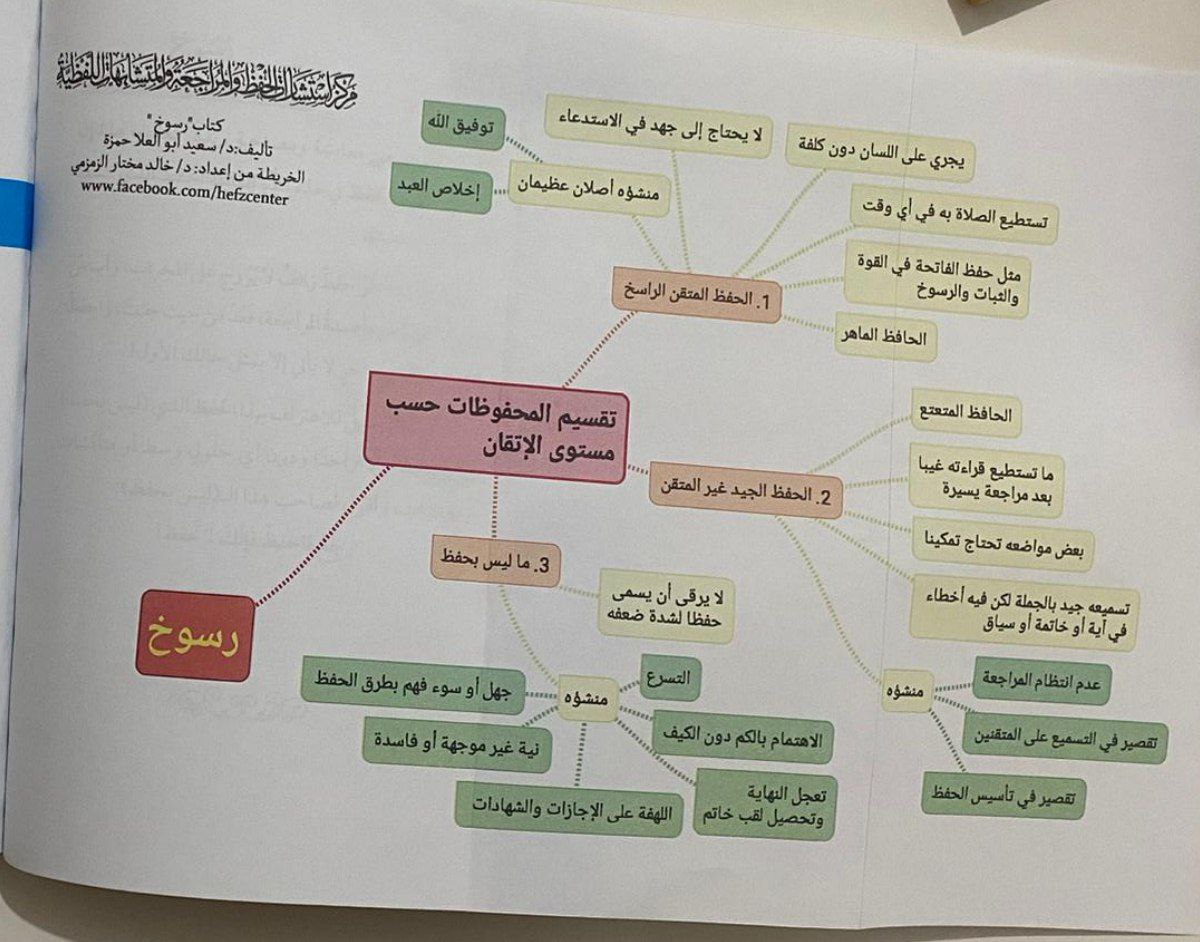 مركز استشارات الحفظ والمراجعة والمتشابهات اللفظية
كتاب "رسوخ"
تأليف:د/ سعيد أبو العلا حمزة
الخريطة من إعداد: د/ خالد مختار الزمزمي
www.facebook.com/hefzcenter
تقسيم المحفوظات حسب
مستوى الإتقان
1. الحفظ المتقن الراسخ
يجري على اللسان دون كلفة
لا يحتاج إلى جهد في الاستدعاء
منشؤه أصلان عظيمان
توفيق الله
إخلاص العبد
تستطيع الصلاة به في أي وقت
مثل حفظ الفاتحة في القوة
والثبات والرسوخ
الحافظ الماهر
2. الحفظ الجيد غير المتقن
الحافظ المتعتع
ما تستطيع قراءته غيبا
بعد مراجعة يسيرة
بعض مواضعه تحتاج تمكينا
تسميعه جيد بالجملة لكن فيه أخطاء
في آية أو خاتمة أو سياق
منشؤه
عدم انتظام المراجعة
تقصير في التسميع على المتقنين
تقصير في تأسيس الحفظ
3. ما ليس بحفظ
لا يرقى أن يسمى
حفظا لشدة ضعفه
منشؤه
التسرع
الاهتمام بالكم دون الكيف
تعجل النهاية
وتحصيل لقب خاتم
اللهفة على الإجازات والشهادات
نية غير موجهة أو فاسدة
جهل أو سوء فهم بطرق الحفظ
رسوخ